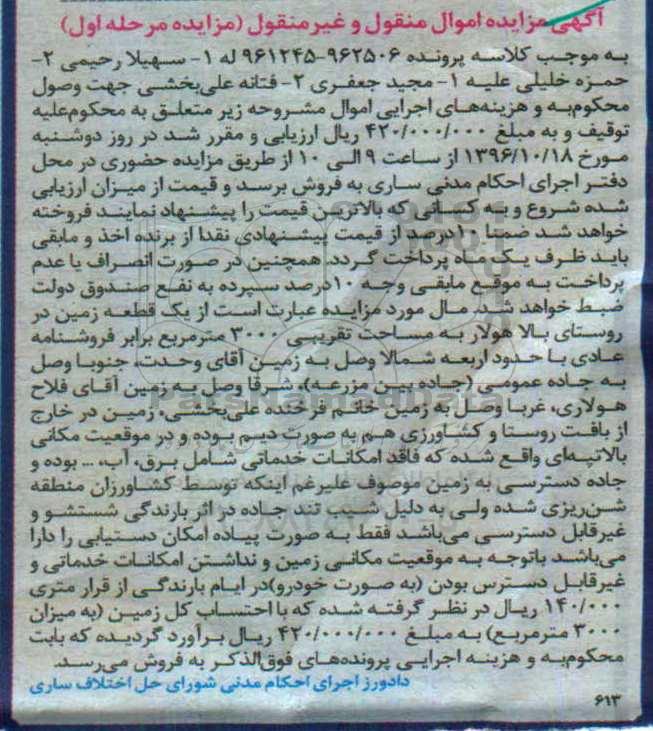 آگهی مزایده اموال منقول و غیرمنقول (مزایده مرحله اول)
به موجب کلاسه پرونده ۹۶۲۵۰۶-۹۶۱۲۴۵ له ۱- سهیلا رحیمی ۲-
حمزه خلیلی علیه ۱- مجید جعفری ۲- فتانه علی‌بخشی جهت وصول
محکوم‌به و هزینه‌های اجرایی اموال مشروحه زیر متعلق به محکوم‌علیه
توقیف و به مبلغ ۴۲۰/۰۰۰/۰۰۰ ریال ارزیابی و مقرر شد در روز دوشنبه
مورخ ۱۳۹۶/۱۰/۱۸ از ساعت ۹ الی ۱۰ از طریق مزایده حضوری در محل
دفتر اجرای احکام مدنی ساری به فروش برسد و قیمت از میزان ارزیابی
شده شروع و به کسانی که بالاترین قیمت را پیشنهاد نمایند فروخته
خواهد شد ضمنا ۱۰درصد از قیمت پیشنهادی نقدا از برنده اخذ و مابقی
باید ظرف یک ماه پرداخت گردد. همچنین در صورت انصراف یا عدم
پرداخت به موقع مابقی وجه ۱۰درصد سپرده به نفع صندوق دولت
ضبط خواهد شد. مال مورد مزایده عبارت است از یک قطعه زمین در
روستای بالا هولار به مساحت تقریبی ۳۰۰۰ مترمربع برابر فروشنامه
عادی با حدود اربعه شمالا وصل به زمین آقای وحدت، جنوبا وصل
به جاده عمومی (جاده بین مزرعه)، شرقا وصل به زمین آقای فلاح
هولاری، غربا وصل به زمین خانم فرخنده علی‌بخشی، زمین در خارج
از بافت روستا و کشاورزی هم به صورت دیم بوده و در موقعیت مکانی
بالاتپه‌ای واقع شده که فاقد امکانات خدماتی شامل برق، آب، ... بوده و
جاده دسترسی به زمین موصوف علیرغم اینکه توسط کشاورزان منطقه
شن‌ریزی شده ولی به دلیل شیب تند جاده در اثر بارندگی شستشو و
غیرقابل دسترسی می‌باشد فقط به صورت پیاده امکان دستیابی را دارا
می‌باشد باتوجه به موقعیت مکانی زمین و نداشتن امکانات خدماتی و
غیرقابل دسترس بودن (به صورت خودرو)در ایام بارندگی از قرار متری
۱۴۰/۰۰۰ ریال در نظر گرفته شده که با احتساب کل زمین (به میزان
۳۰۰۰ مترمربع) به مبلغ ۴۲۰/۰۰۰/۰۰۰ ریال برآورد گردیده که بابت
محکوم‌به و هزینه اجرایی پرونده‌های فوق‌الذکر به فروش می‌رسد.
دادورز اجرای احکام مدنی شورای حل اختلاف ساری
۶۱۳
ParsNamadData